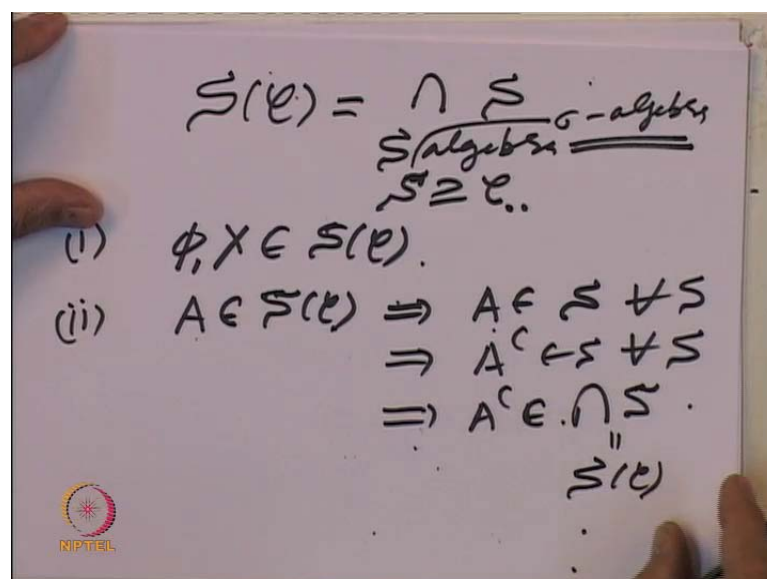 S(C) = ∩ S
S algebra σ-algebra
S ⊇ C
(i) φ, X ∈ S(C).
(ii) A ∈ S(C) ⇒ A ∈ S ∀ S
⇒ Aᶜ ∈ S ∀ S
⇒ Aᶜ ∈ ∩ S .
॥
S(C)
NPTEL